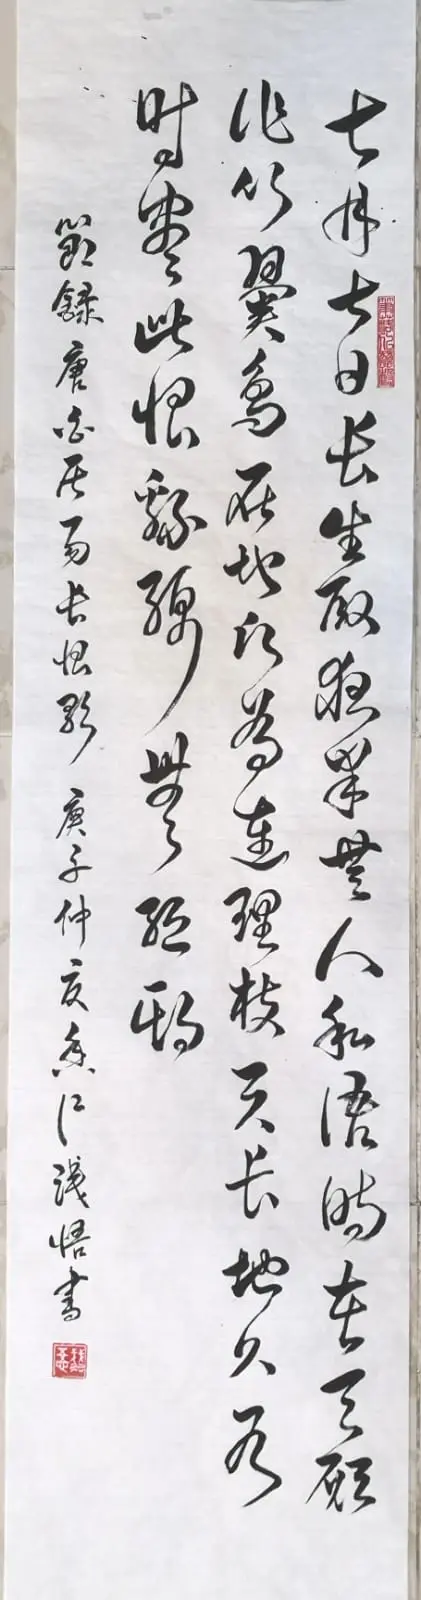 七月七日长生殿夜半无人私语时在天愿
作比翼鸟在地愿为连理枝天长地久有
时尽此恨绵绵无绝期
节录唐白居易长恨歌 庚子仲夏 书